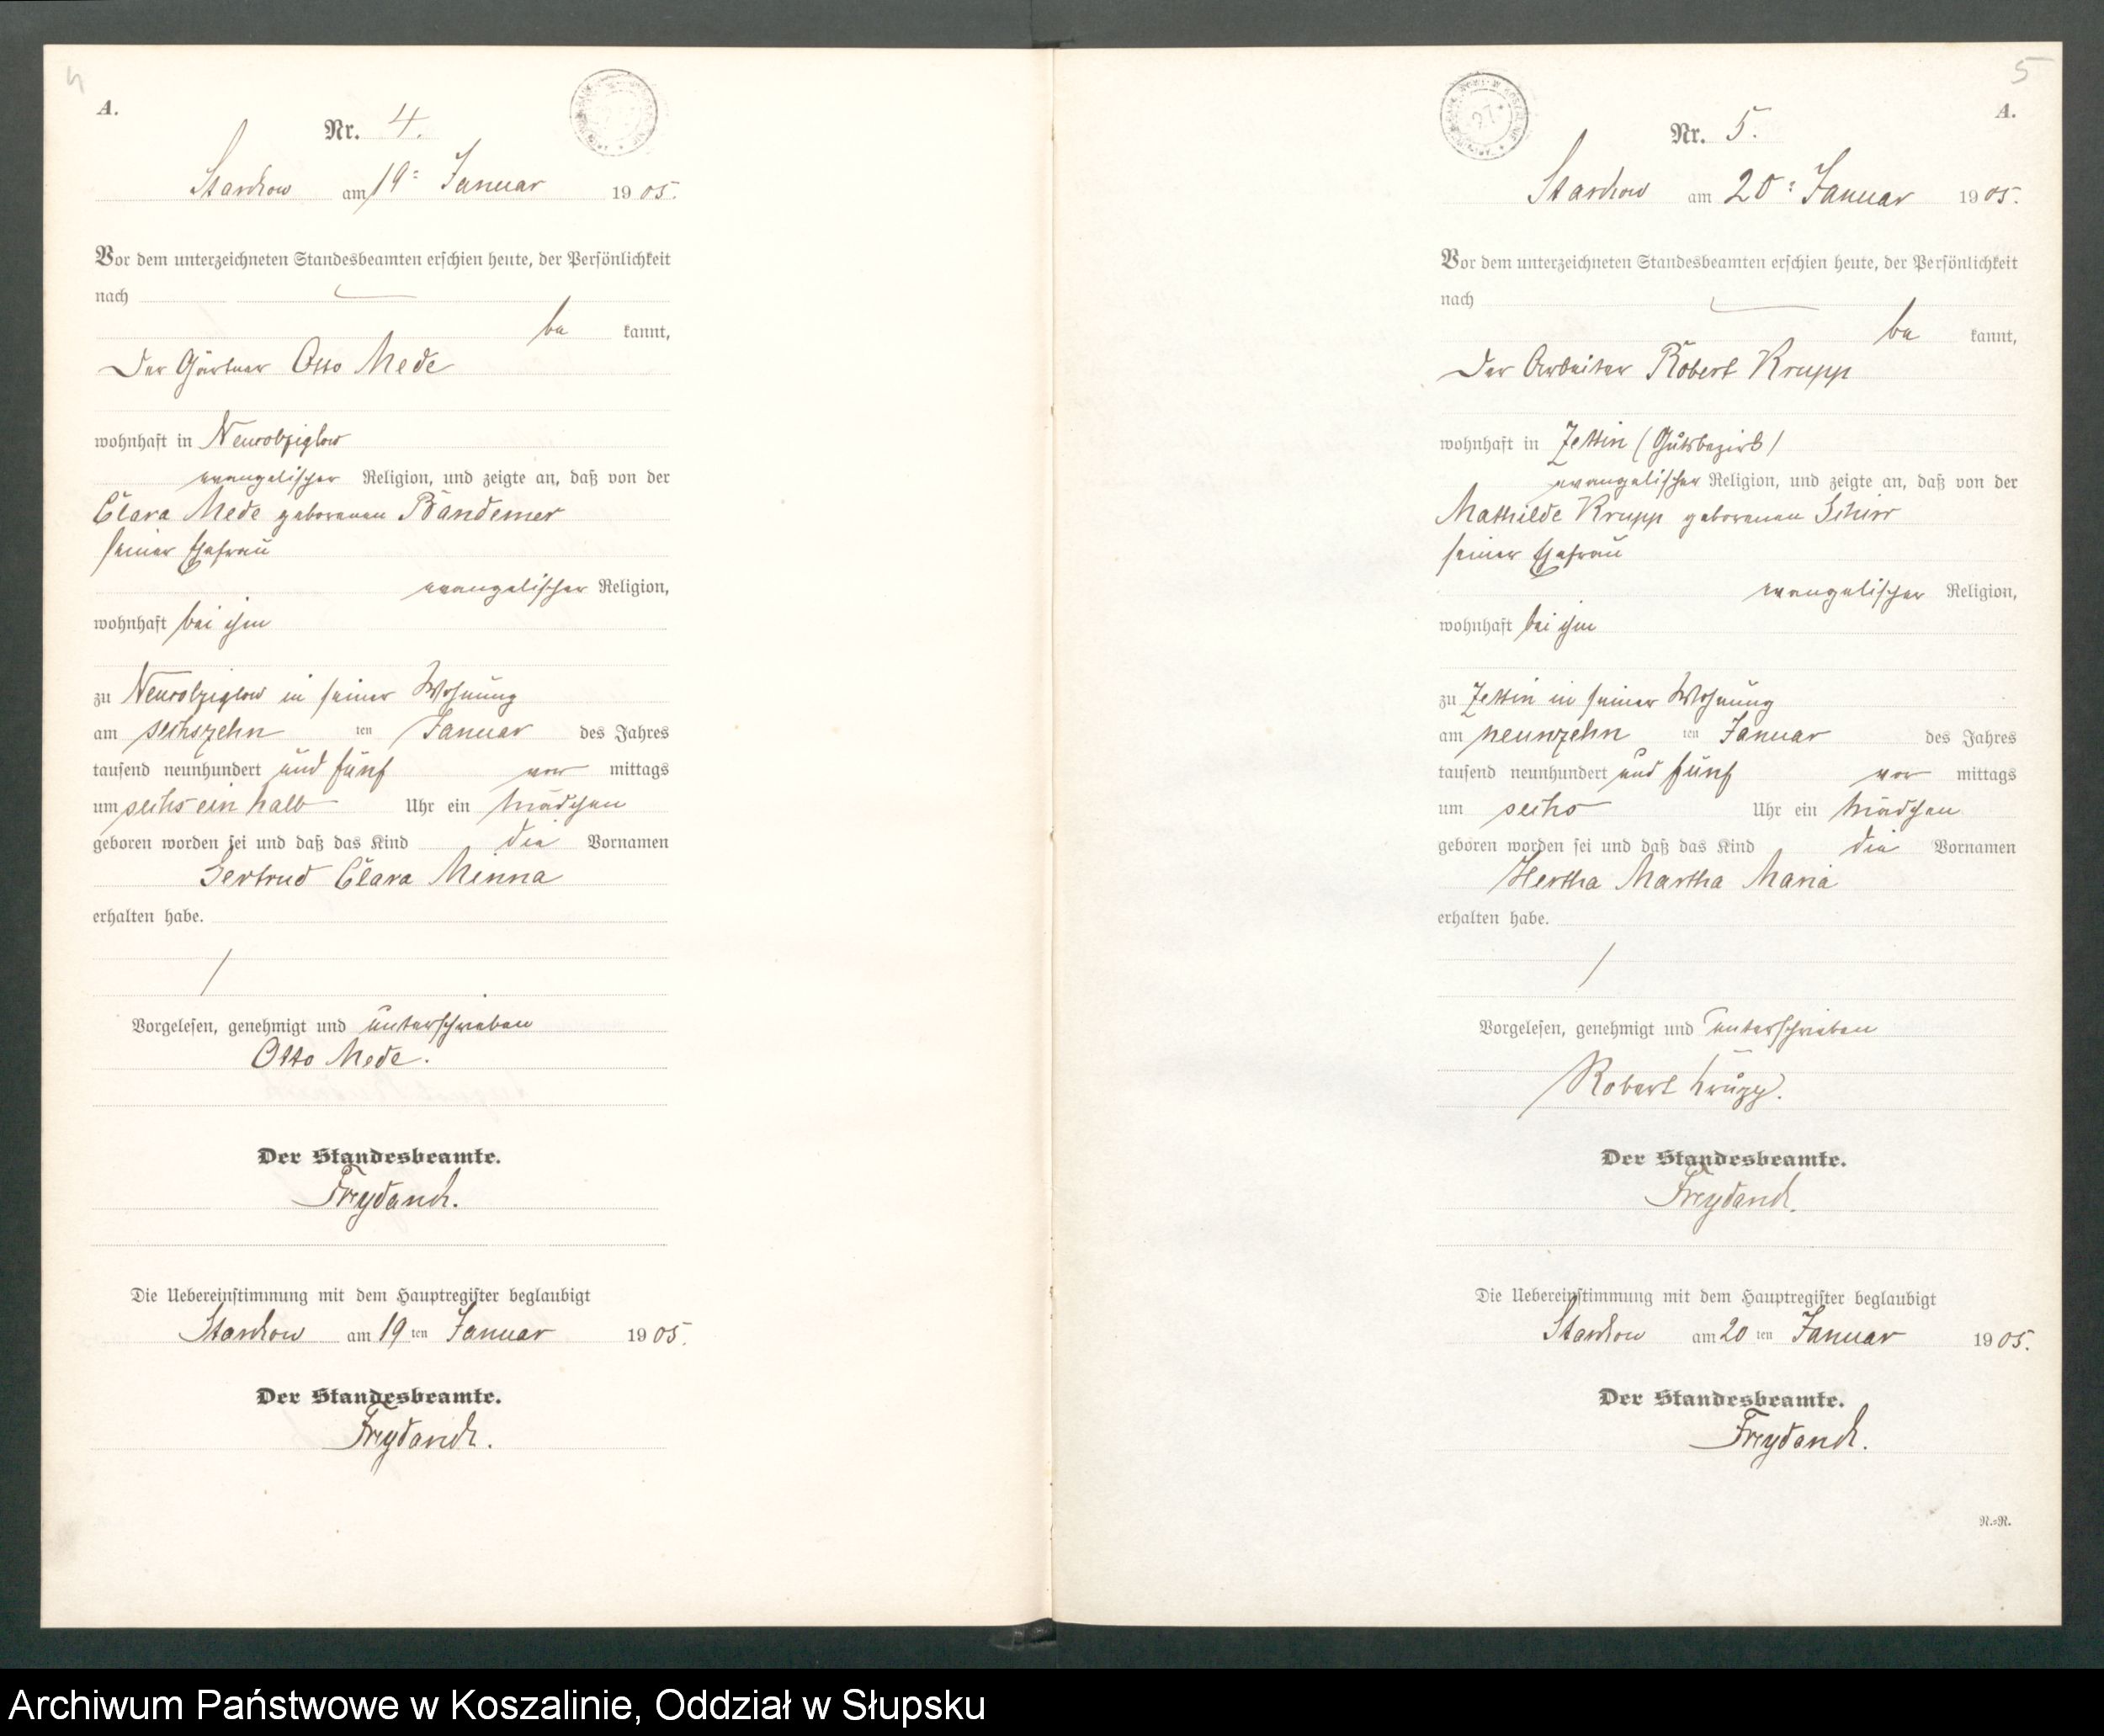 4
A.
Nr. 4.
Starckow am 19ten Januar 1905.
Vor dem unterzeichneten Standesbeamten erschien heute, der Persönlichkeit
nach
be kannt,
der Gärtner Otto Mede
wohnhaft in Neurobziglow
evangelischer Religion, und zeigte an, daß von der
Clara Mede geborenen Bandemer
seiner Ehefrau
evangelischer Religion,
wohnhaft bei ihm
zu Neurobziglow in seiner Wohnung
am sechszehn ten Januar des Jahres
tausend neunhundert und fünf vor mittags
um sechs ein halb Uhr ein Mädchen
geboren worden sei und daß das Kind die Vornamen
Gertrud Clara Minna
erhalten habe.
Vorgelesen, genehmigt und unterschrieben
Otto Mede.
Der Standesbeamte.
Freydanck.
Die Uebereinstimmung mit dem Hauptregister beglaubigt
Starckow am 19 ten Januar 1905.
Der Standesbeamte.
Freydanck.
5
A.
27
Nr. 5.
Starckow am 20ten Januar 1905.
Vor dem unterzeichneten Standesbeamten erschien heute, der Persönlichkeit
nach
be kannt,
der Arbeiter Robert Krupp
wohnhaft in Zettin (Gutsbezirk)
evangelischer Religion, und zeigte an, daß von der
Mathilde Krupp geborenen Schirr
seiner Ehefrau
evangelischer Religion,
wohnhaft bei ihm
zu Zettin in seiner Wohnung
am neunzehn ten Januar des Jahres
tausend neunhundert und fünf vor mittags
um sechs Uhr ein Mädchen
geboren worden sei und daß das Kind die Vornamen
Hertha Martha Maria
erhalten habe.
Vorgelesen, genehmigt und unterschrieben
Robert Krupp.
Der Standesbeamte.
Freydanck.
Die Uebereinstimmung mit dem Hauptregister beglaubigt
Starckow am 20 ten Januar 1905.
Der Standesbeamte.
Freydanck.
R.=R.
Archiwum Państwowe w Koszalinie, Oddział w Słupsku